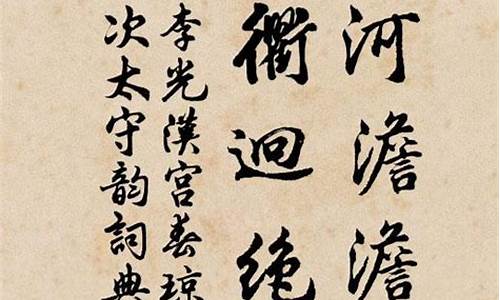 河澹澹
衢迥绝
李光漢宫春琼
次太守韵詞典